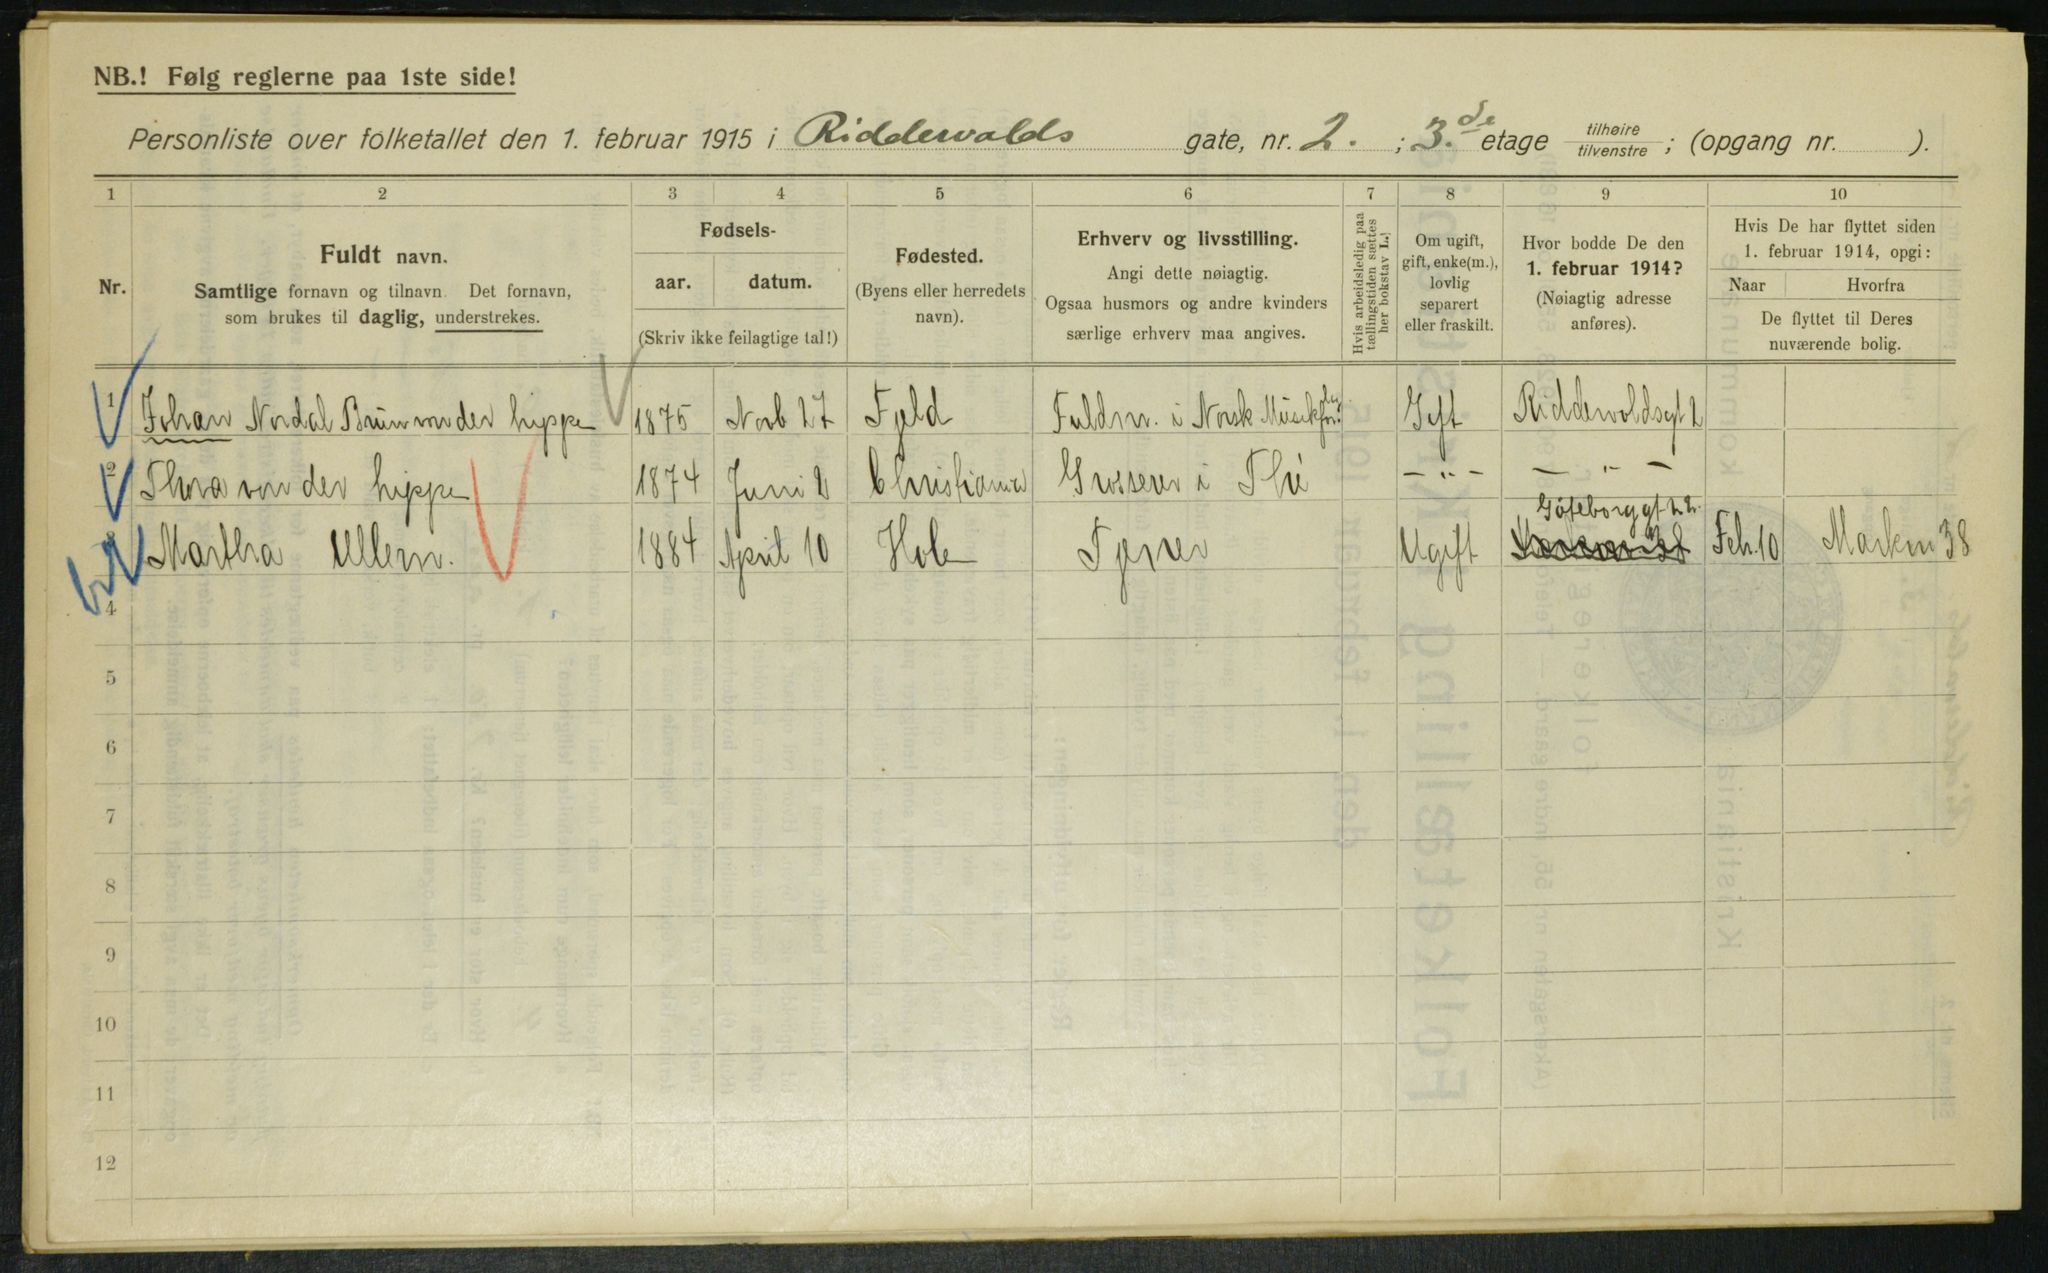 NB.! Følg reglerne paa 1ste side!
Personliste over folketallet den 1. februar 1915 i Riddervolds gate, nr. 2. ; 3.de etage tilhøire tilvenstre ; (opgang nr. ).
1 2 3 4 5 6 7 8 9 10
Nr.
Fuldt navn.
Samtlige fornavn og tilnavn. Det fornavn,
som brukes til daglig, understrekes.
Fødsels-
aar. datum.
(Skriv ikke feilagtige tal!)
Fødested.
(Byens eller herredets
navn).
Erhverv og livsstilling.
Angi dette nøiagtig.
Ogsaa husmors og andre kvinders
særlige erhverv maa angives.
Hvis arbeidsledig paa
tællingstiden sættes
her bokstav L.
Om ugift,
gift, enke(m.),
lovlig
separert
eller fraskilt.
Hvor bodde De den
1. februar 1914?
(Nøiagtig adresse
anføres).
Hvis De har flyttet siden
1. februar 1914, opgi:
Naar Hvorfra
De flyttet til Deres
nuværende bolig.
1 Johan Nordal Brun von der Lippe 1875 Novb 27 Fjeld Fuldm. i Norsk Musikforlag Gift Riddervoldsgt 2
2 Thora von der Lippe 1874 Juni 2 Christiania Grosserer i Thé — " — — " —
3 Martha Ullern. 1884 April 10 Hole Tjener Ugift Göteborggt 22. Feb. 10 Markvn 38
4
5
6
7
8
9
10
11
12